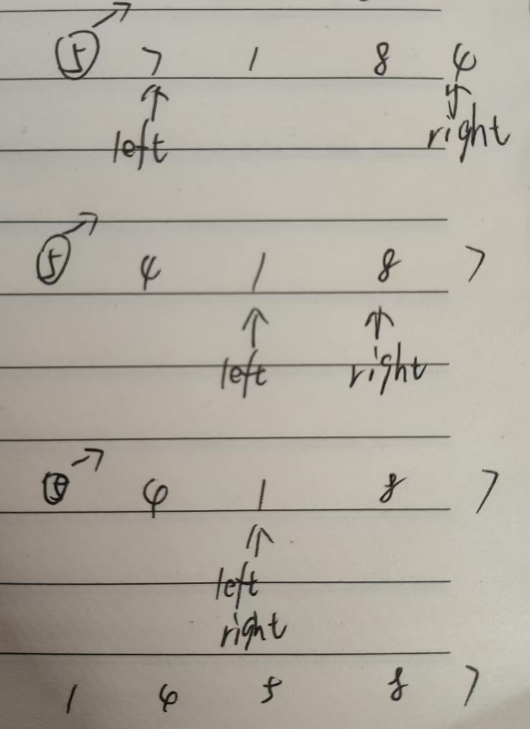 5 7 1 8 4
left right
5 4 1 8 7
left right
5 4 1 8 7
left
right
1 4 5 8 7